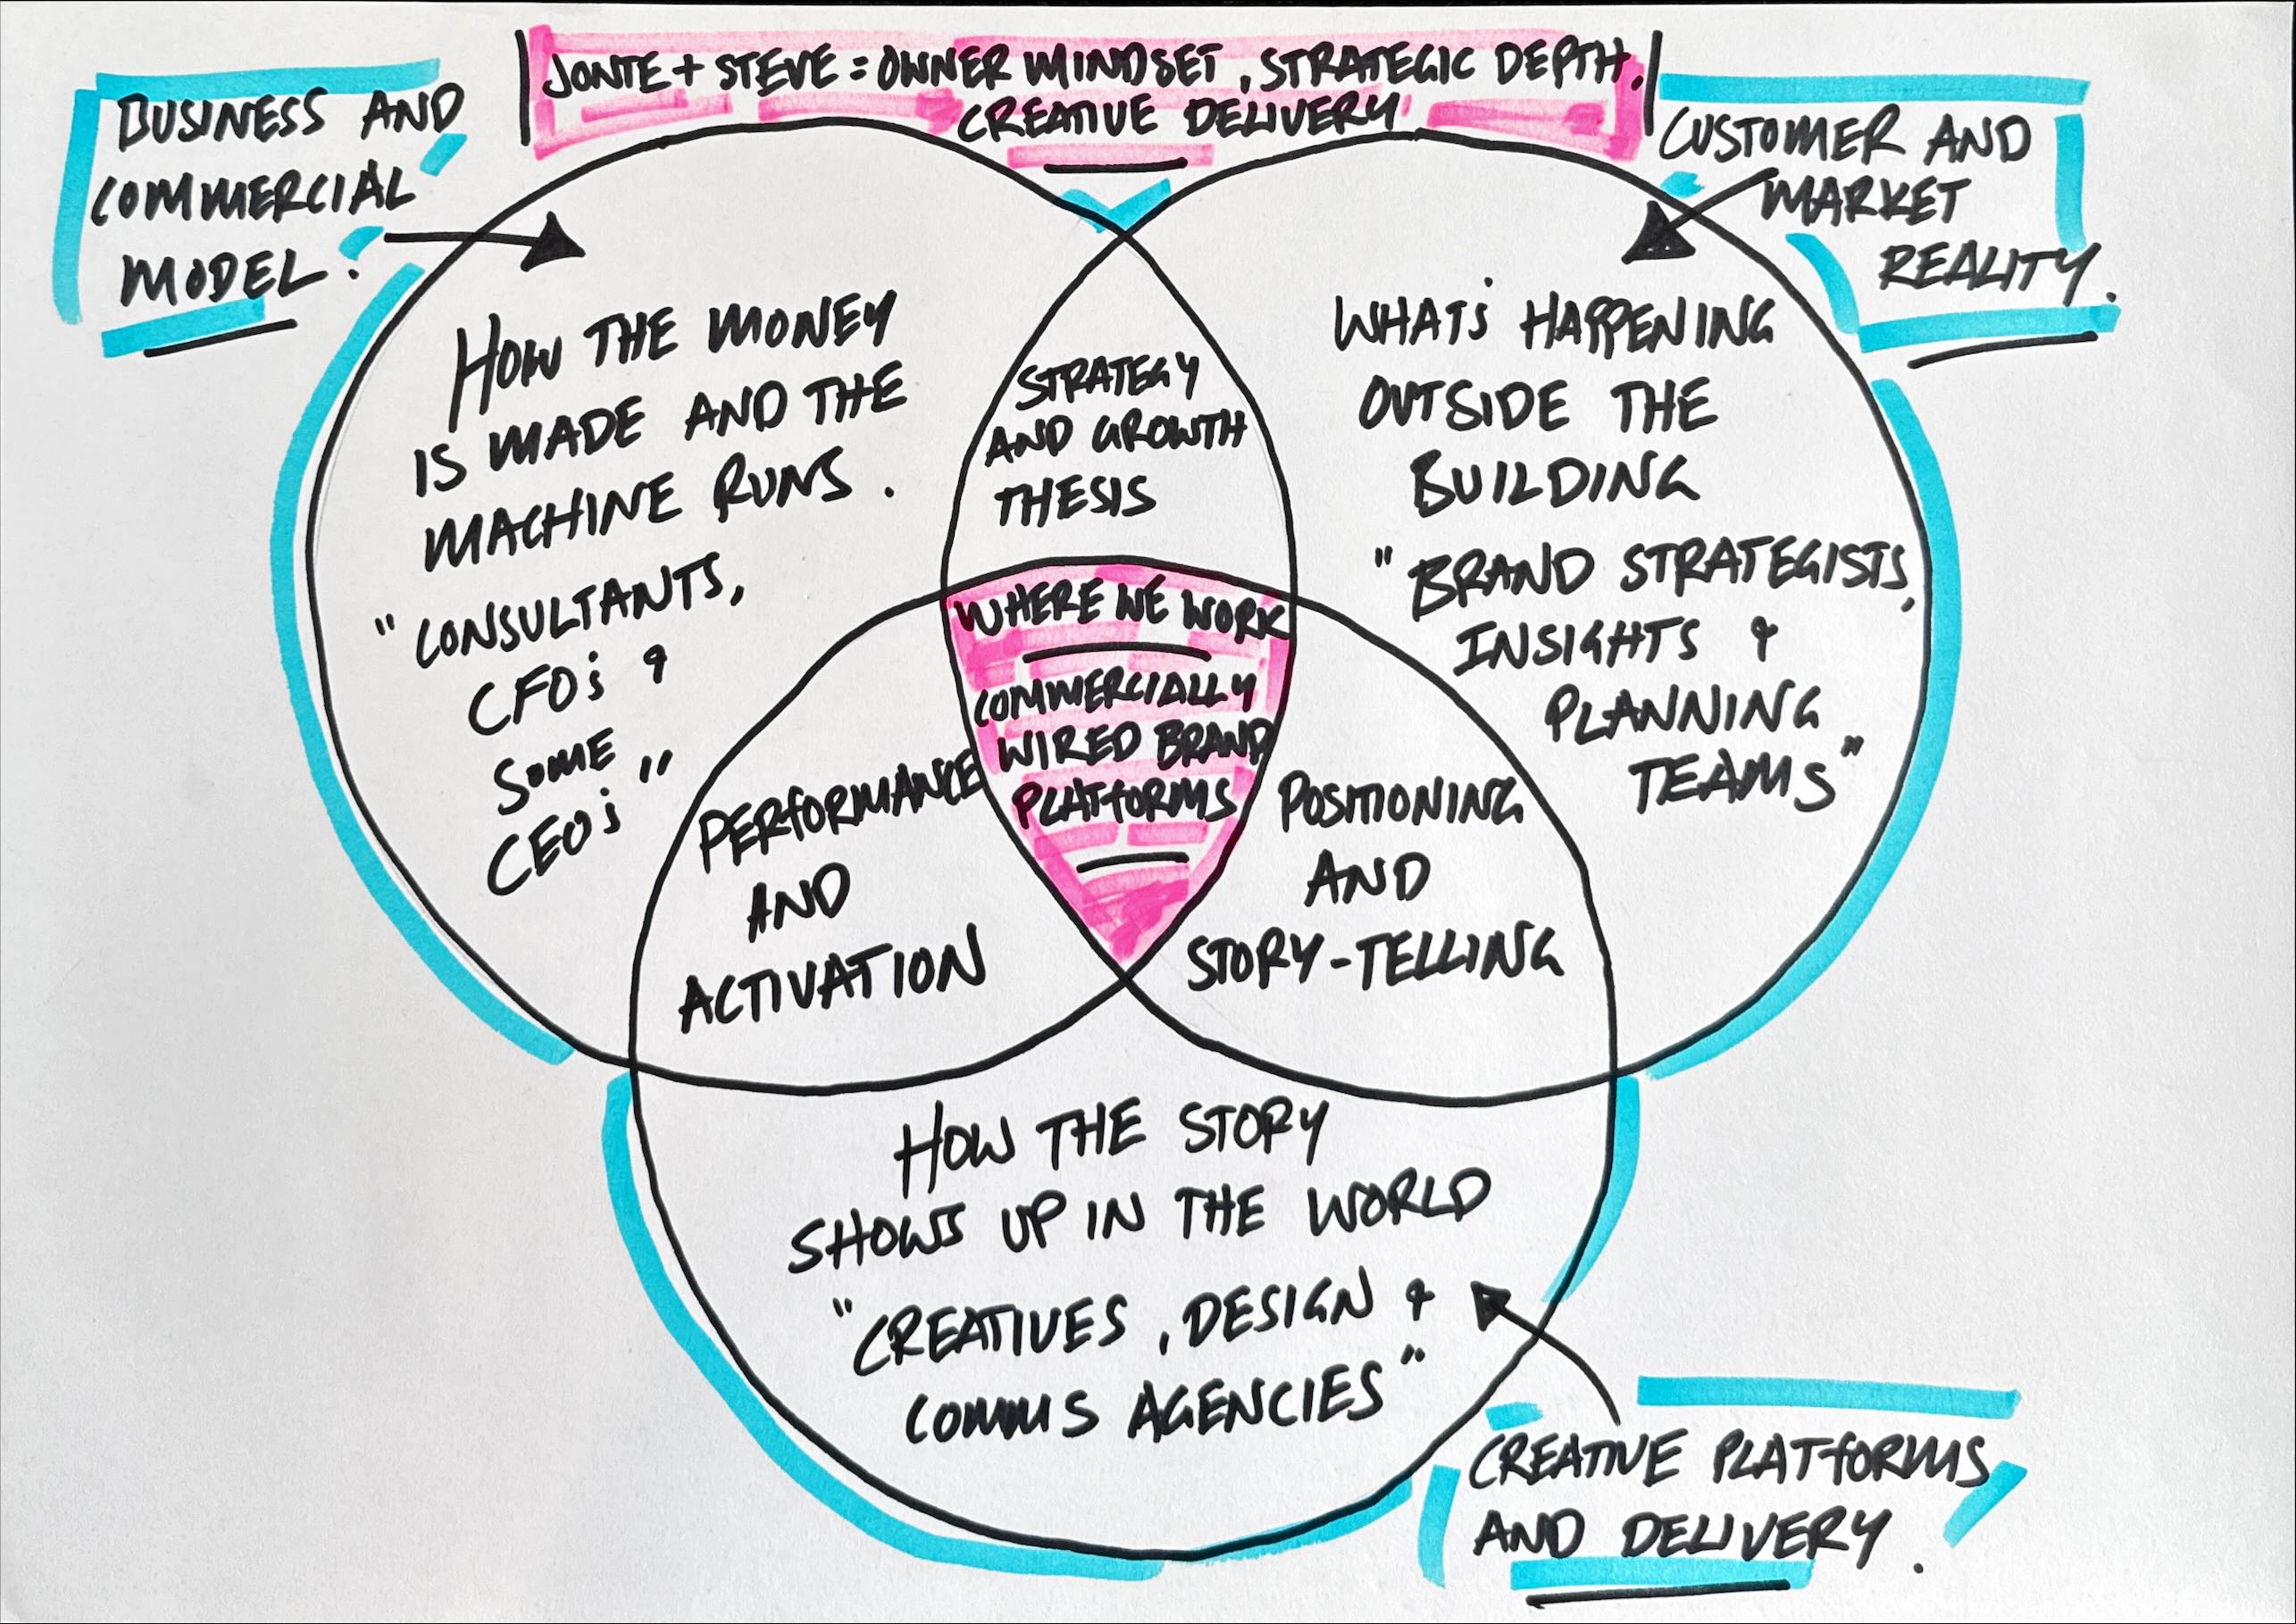 JONTE + STEVE = OWNER MINDSET, STRATEGIC DEPTH,
CREATIVE DELIVERY
BUSINESS AND
COMMERCIAL
MODEL.
CUSTOMER AND
MARKET
REALITY.
HOW THE MONEY
IS MADE AND THE
MACHINE RUNS.
"CONSULTANTS,
CFOs &
SOME
CEOs"
STRATEGY
AND GROWTH
THESIS
WHAT'S HAPPENING
OUTSIDE THE
BUILDING
"BRAND STRATEGISTS,
INSIGHTS &
PLANNING
TEAMS"
WHERE WE WORK
COMMERCIALLY
WIRED BRAND
PLATFORMS
PERFORMANCE
AND
ACTIVATION
POSITIONING
AND
STORY-TELLING
HOW THE STORY
SHOWS UP IN THE WORLD
"CREATIVES, DESIGN &
COMMS AGENCIES"
CREATIVE PLATFORMS
AND DELIVERY.